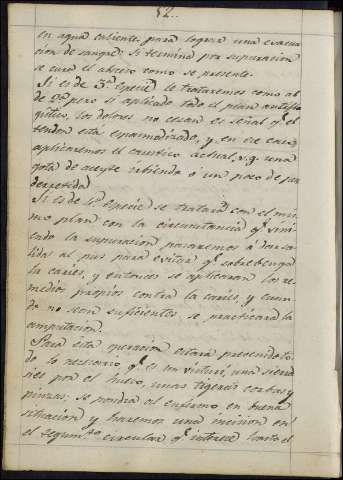 52..
en agua caliente para lograr una evacua
cion de sangre; Si terminó por supuracion
se cura el abceso como se presente.
Si es de 3ª especie le trataremos como al
de 2ª pero si aplicado todo el plan antiflo
gistico, los dolores no cesan es señal qᵉ el
tendon está espasmodizado, y en ese caso
aplicaremos el caustico actual, v.g. una
gota de aceyte irbiendo o un poco de
derretida
Si es de 4ª especie se tratará con el mis
mo plan con la circunstancia qᵉ vini
endo la supuracion pasaremos á dar sa
lida al pus para evitar qᵉ sobrebenga
la caries, y entonces se aplicaran los re
medios propios contra la caries, y cuan
do no sean suficientes se practicará la
amputacion.
Para esta operacion estará prevenido to
do lo nesesario qᵉ es un visturí, una sierra
sies por el hueso, unas tigeras corbas y
pinzas; se pondrá al enfermo en buena
situacion y haremos una incision en
el tegumᵗᵒ circular qᵉ interese hasta el